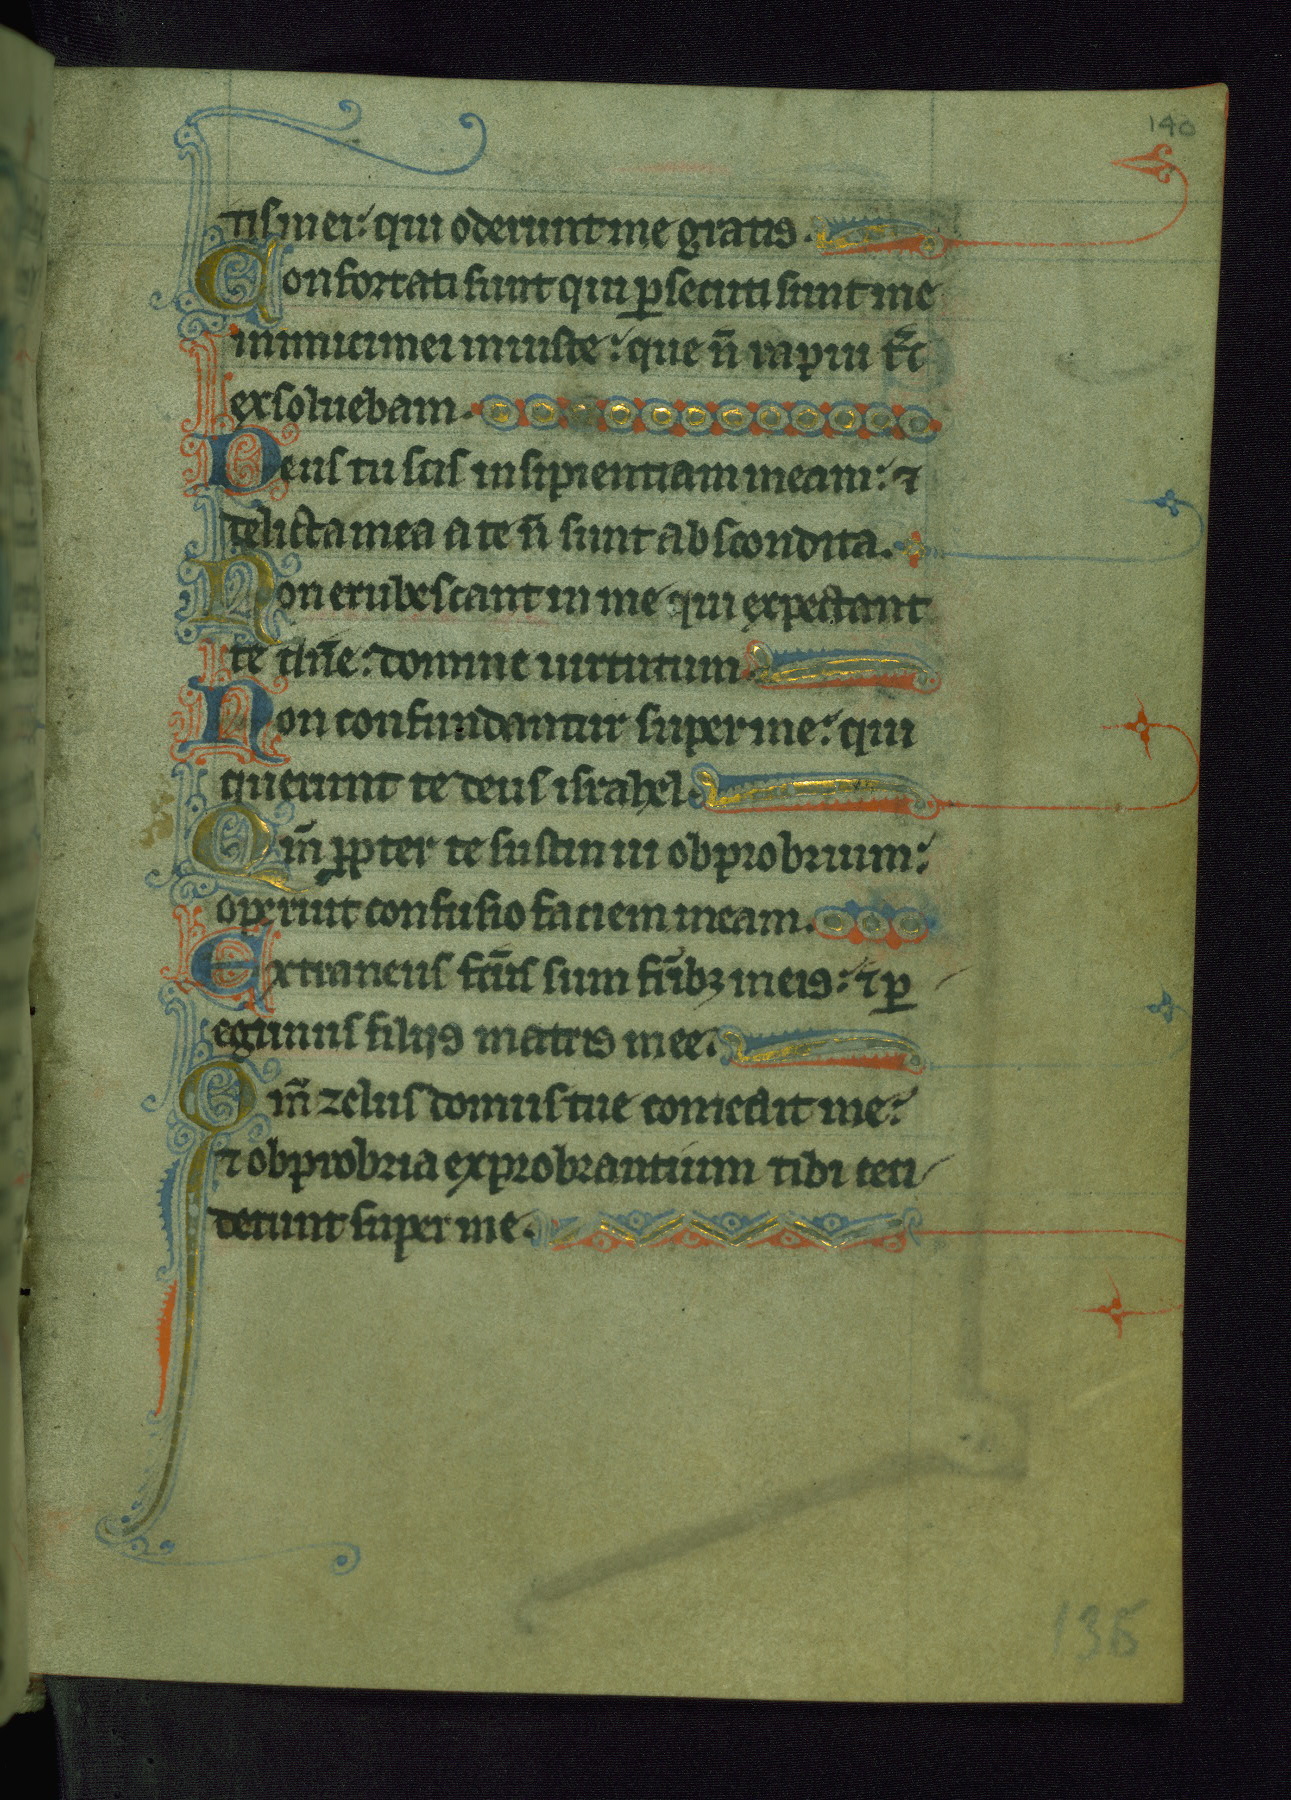 140
tis mei: qui oderunt me gratis.
Confortati sunt qui ꝑsecuti sunt me
inimici mei iniuste: que ñ rapui tc̄
exsoluebam.
Deus tu scis insipientiam meam: ⁊
delicta mea a te ñ sunt abscondita.
Non erubescant in me qui expectant
te dn̄e: domine uirtutum.
Non confundantur super me: qui
querunt te deus israhel.
Qm̄ ꝓpter te sustinui obprobrium:
operuit confusio faciem meam.
Extraneus fc̄us sum frībꝫ meis: ⁊ ꝑ
egrinus filijs matris mee.
Qm̄ zelus domus tue comedit me:
⁊ obprobria exprobrantium tibi ceci
derunt super me.
136